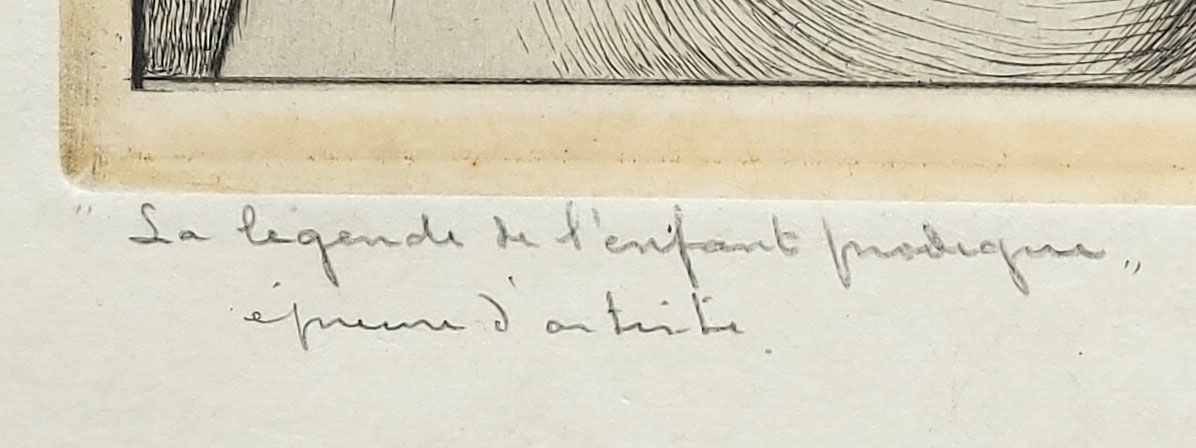 " La légende de l'enfant prodigue „
épreuve d'artiste.